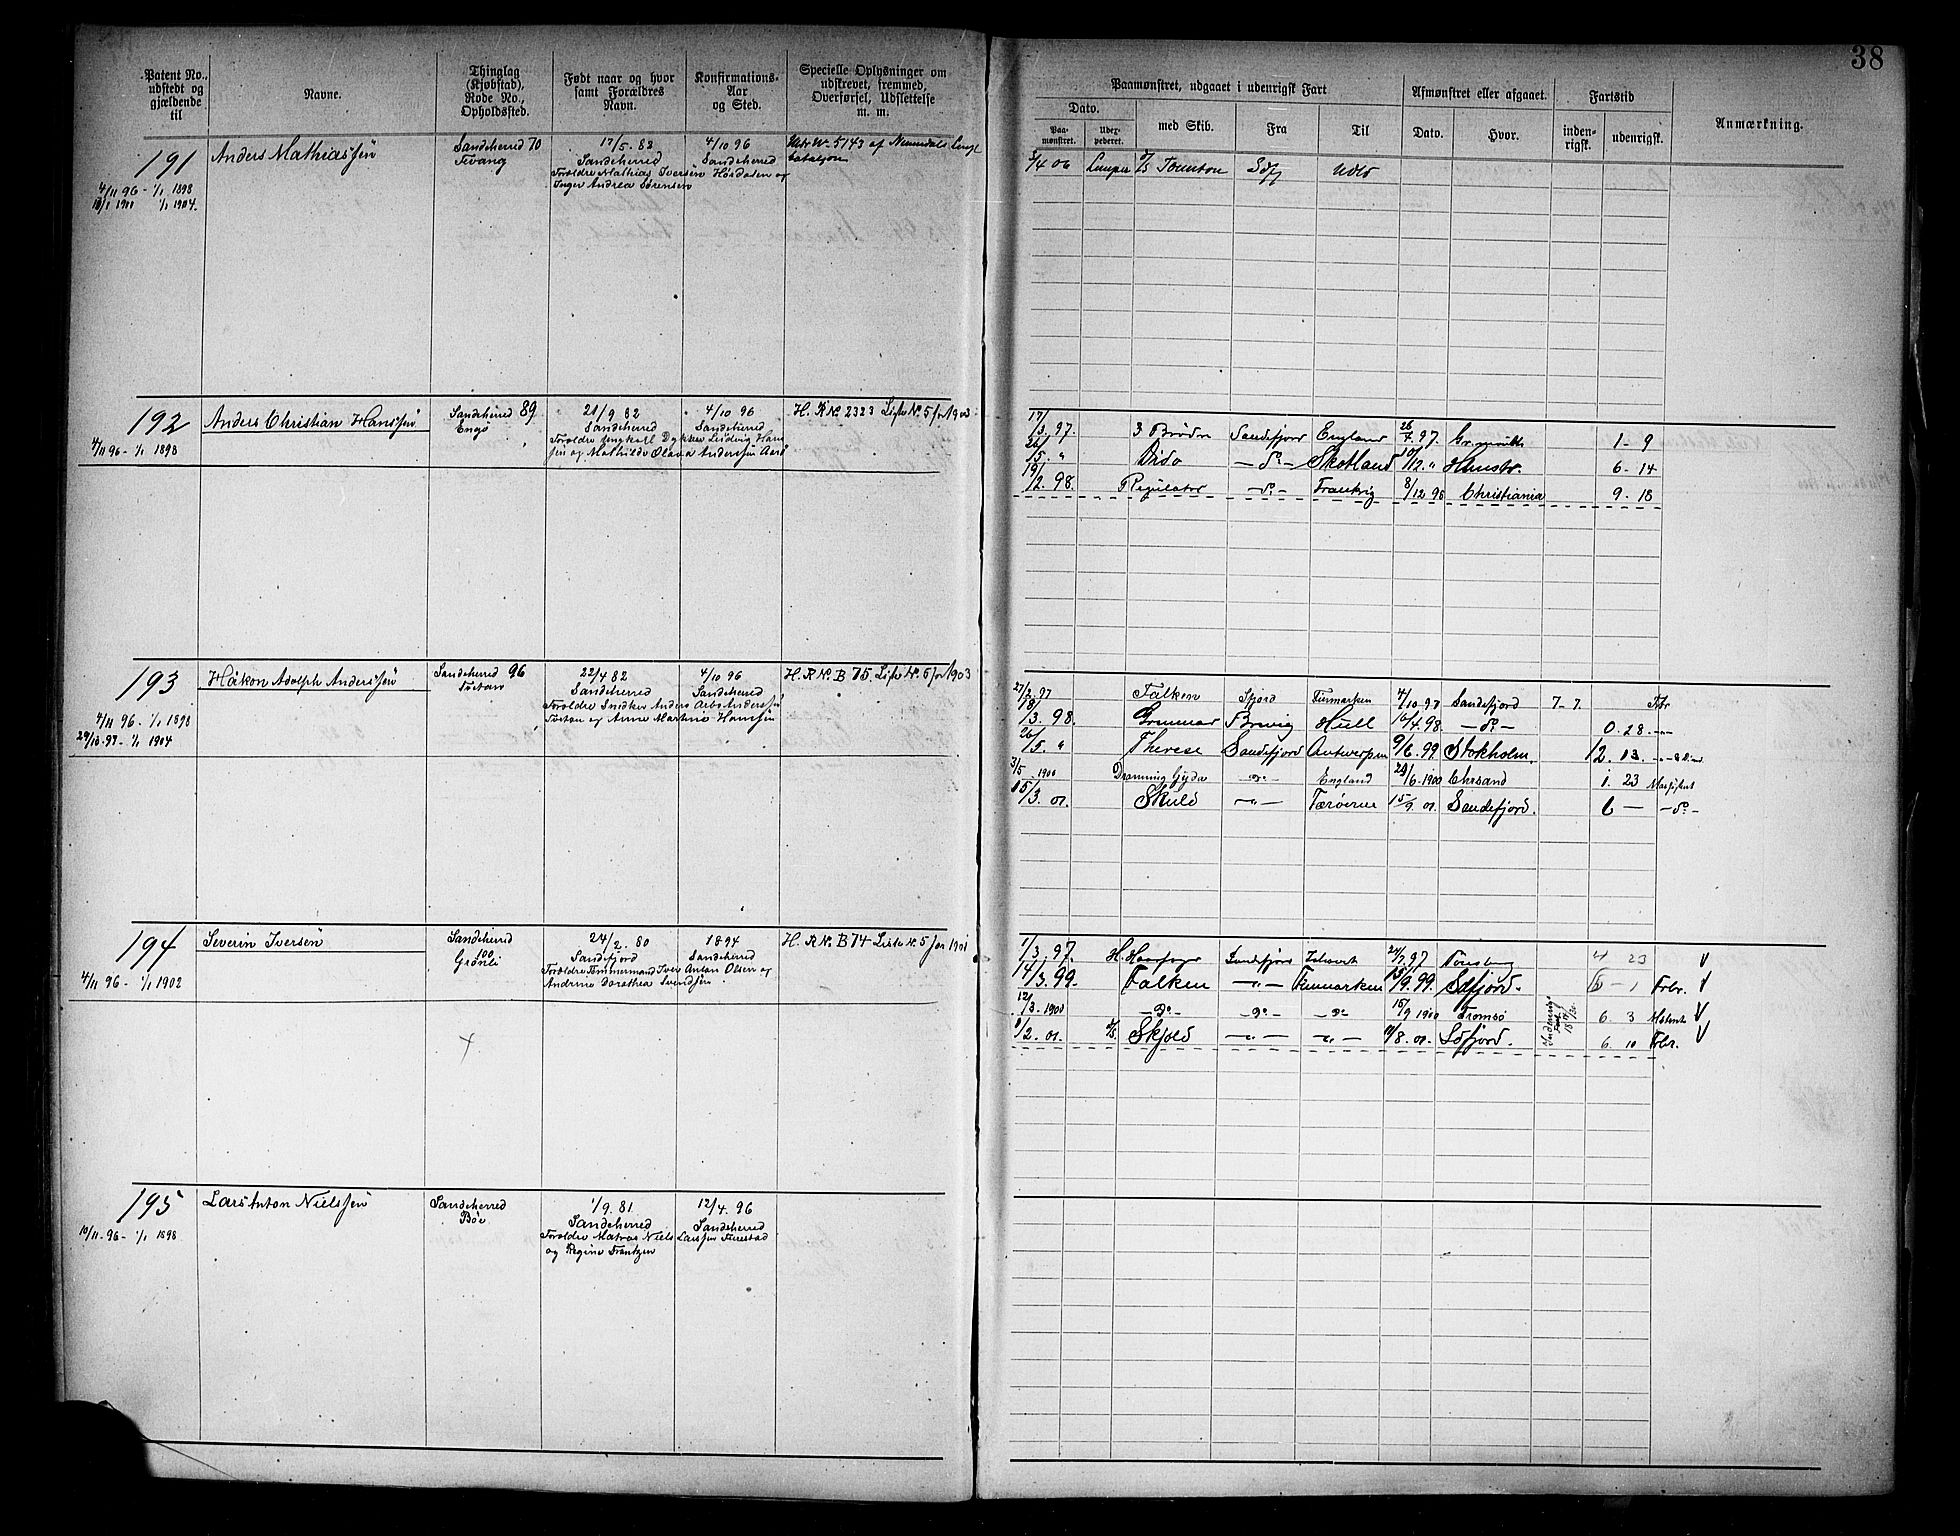 38
Patent No., udstedt og gjældende til
Navne.
Thinglag (Kjøbstad), Rode No., Opholdssted.
Født naar og hvor samt Forældres Navn.
Konfirmations-Aar og Sted.
Specielle Oplysninger om udskrevet, fremmed, Overførsel, Udslettelse m. m.
Paamønstret, udgaaet i udenrigsk Fart
Afmønstret eller afgaaet.
Fartstid
Anmærkning.
Dato.
Paa-mønstret.
Uder-pederet.
med Skib.
Fra
Til
Dato.
Hvor.
inden-rigsk.
udenrigsk.
191
4/11 96 - 1/1 1898
1/1 1904.
Anders Mathiassen
Sandeherred 70
17/5. 82
Sandeherred
Forældre Mathias Iversen
Inger Andrea Sørensen
4/10 96
Sandeherred
5143 af Numedals
bataljon
4 06 Taunton
192
4/11 96 - 1/1 1898
Anders Christian Hanssen
Sandeherred 89
Engø
21/9 82
Sandeherred
4/10 96
Sandeherred
H. R No. 2323 Liste No. 5 for 1903
17/3. 97. 3 Brødre Sandefjord England 26/4 97. 1 - 9
5. " Dido - Do - Skotland 10/12 " 6. 14
19/2. 98. Regulator - Do - Frankrig 8/12 98 Christiania 9. 18
193
4/11 96. - 1/1 1898
- 1/1 1904
Håkon Adolph Anderssen
Sandeherred 96
22/4 82
Sandeherred
Forældre Snidker Anders
og Anne Martine Hanssen
4/10 96
Sandeherred
H. R No. B 75. Liste No. 5 for 1903
27/2. 97 Falken Sfjord Finmarken 4/10 97 Sandefjord 7 - 7.
18/3. 98. Brevig Hull 16/4. 98. - Do - 0. 28.
26/5. " Therese Sandefjord Antwerpen 9/6. 99 Stokholm. 12. 13.
3/5 1900 Dronning Gyda Do England 1900 Chrsand 1. 23
15/3. 01. Skuld - " - Færøerne 15/9. 01. Sandefjord. 6 - - Do -
194
4/11 96 - 1/1 1902
Severin Iversen
Sandeherred
100
Grønli
24/2. 80
Sandefjord
Forældre Tømmermand Iver Anton Olsen og
Andrine Dorothea Svendsen
1894
Sandeherred
H. R No. B 74 Liste No. 5 for 1901
1/3. 97. H. Haarfager Sandefjord 24/7 97 Tønsberg 4 23
14/3. 99. Falken - " - Finmarken 15/9. 99. Sfjord. 6 - 1 Frbr.
12/3. 1900 - Do - - Do - - Do - 15/9 1900 Tromsø 6. 3
2. 01. Skjold - " - - " - 11/8. 01. Sdfjord. 6. 10 Frbr.
195
10/11 - 96 - 1/1 1898
Lars Anton Nielssen
Sandeherred
Bøe
1/9. 81.
Sandeherred
Forældre Matros Niels Larssen
og Regine Frantzen
12/4. 96
Sandeherred